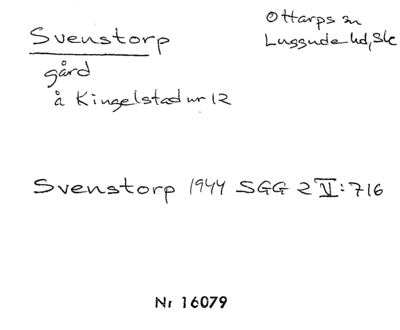 Svenstorp
gård
å Kingelstad nr 12
Ottarps sn
Luggude hd, Sk
Svenstorp 1944 SGG 2 V: 716
Nr 16079